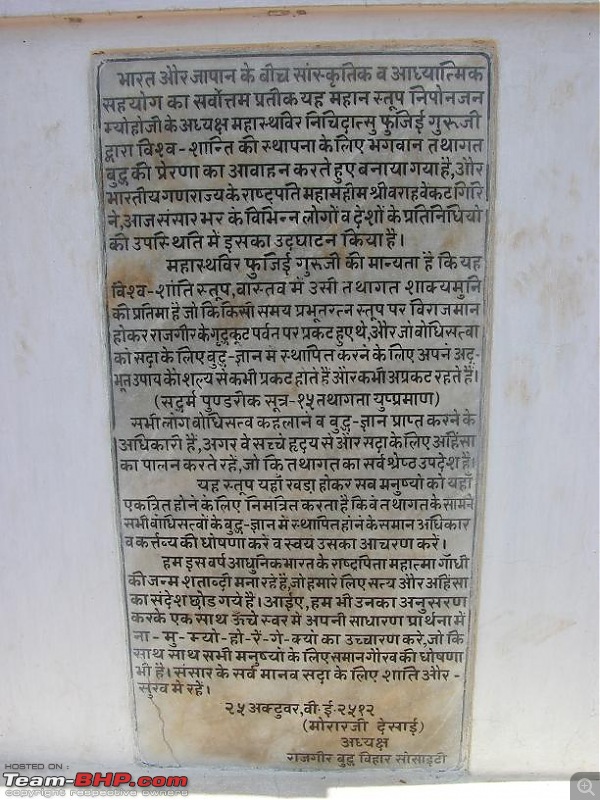 भारत और जापान के बीच सांस्कृतिक व आध्यात्मिक
सहयोग का सर्वोत्तम प्रतीक यह महान स्तूप निपोनजन
म्योहोजी के अध्यक्ष महास्थविर निचिदात्सु फुजिई गुरूजी
द्वारा विश्व-शान्ति की स्थापना के लिए भगवान तथागत
बुद्ध की प्रेरणा का आवाहन करते हुए बनाया गया है, और
भारतीय गणराज्य के राष्ट्रपति महामहीम श्री वराह वेंकट गिरि
ने, आज संसार भर के विभिन्न लोगों व देशों के प्रतिनिधियों
की उपस्थिति में इसका उदघाटन किया है।
महास्थविर फुजिई गुरूजी की मान्यता है कि यह
विश्व-शांति स्तूप, वास्तव में उसी तथागत शाक्यमुनि
की प्रतिमा है जो कि किसी समय प्रभूतरत्न स्तूप पर विराजमान
होकर राजगीर के गृद्धकूट पर्वन पर प्रकट हुए थे, और जो बोधिसत्वों
को सदा के लिए बुद्ध-ज्ञान में स्थापित करने के लिए अपने अद्-
भूत उपाय कौशल्य से कभी प्रकट होते हैं और कभी अप्रकट रहते हैं।
(सद्धर्म पुण्डरीक सूत्र-१५ तथागता युष्प्रमाण)
सभी लोग बोधिसत्व कहलाने व बुद्ध-ज्ञान प्राप्त करने के
अधिकारी हैं, अगर वे सच्चे हृदय से और सदा के लिए अहिंसा
का पालन करते रहें, जो कि तथागत का सर्व श्रेष्ठ उपदेश है।
यह स्तूप यहाँ खड़ा होकर सब मनुष्यों को यहाँ
एकत्रित होने के लिए निमंत्रित करता है कि वे तथागत के सामने
सभी बोधिसत्वों के बुद्ध-ज्ञान में स्थापित होने के समान अधिकार
व कर्त्तव्य की घोषणा करें व स्वयं उसका आचरण करें।
हम इस वर्ष आधुनिक भारत के राष्ट्रपिता महात्मा गाँधी
की जन्म शताब्दी मना रहे हैं, जो हमारे लिए सत्य और अहिंसा
का संदेश छोड गये है। आईए, हम भी उनका अनुसरण
करके एक साथ ऊँचे स्वर में अपनी साधारण प्रार्थना में
ना-मु-म्यो-हो-रें-गे-क्यों का उच्चारण करें, जो कि
साथ साथ सभी मनुष्यों के लिए समान गौरव की घोषणा
भी है। संसार के सर्व मानव सदा के लिए शांति और-
सुख में रहें।
२५ अक्टुवर, वी. ई. २५१२
(मोरारजी देसाई)
अध्यक्ष
राजगीर बुद्ध विहार सोसाइटी
HOSTED ON :
Team-BHP.com
copyright respective owners